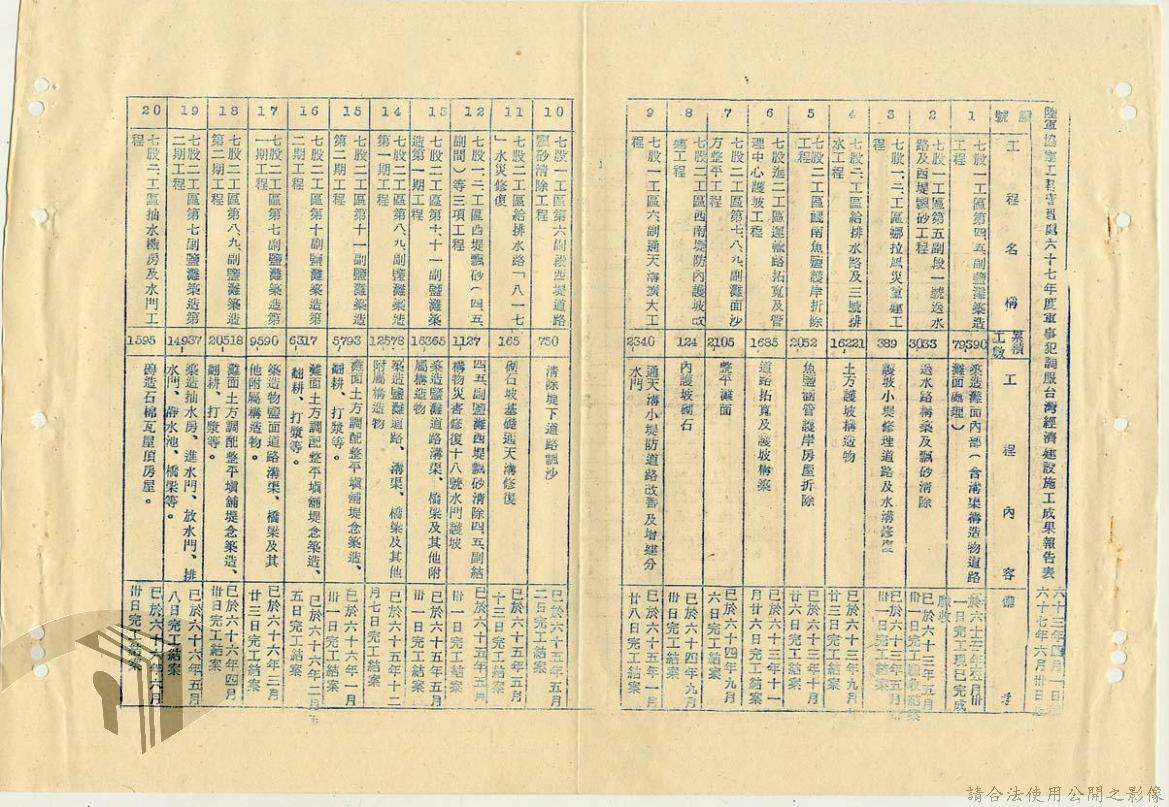 陸軍協建工程管理處六十七年度軍事犯調服台灣經濟建設施工成果報告表
六十三年四月一日起
六十七年六月卅日止
號
工程名稱
累積工數
工程內容
備考
1
七股一工區第四、五副鹽灘築造
工程
79390
築造灘面內部(含溝渠構造物道路
灘面處理)
於六十三年五月卅
一日完工現已完成
驗收
2
七股一工區第五副段一號送水
路及西堤飄砂工程
3033
送水路構築及飄砂清除
已於六十三年五月
卅一日完工驗收結案
3
七股一、二工區娜拉風災重建工
程
389
護坡小堤修理道路及水溝修復
已於六十三年五月
卅一日完工結案
4
七股二工區給排水路及三號排
水工程
16221
土方護坡構造物
已於六十三年九月
卅日完工結案
5
七股二工區國南魚塭護岸折除
工程
2052
魚塭涵管護岸房屋折除
已於六十三年十月
廿六日完工結案
6
七股進二工區運輸路拓寬及管
理中心護坡工程
1685
道路拓寬及護坡構築
已於六十三年十一
月廿六日完工結案
7
七股二工區第七八、九副灘面沙
方整平工程
2105
整平灘面
已於六十四年九月
六日完工結案
8
七股二工區西南堤防內護坡改
建工程
124
內護坡砌石
已於六十四年九月
卅日完工結案
9
七股一工區六副通天溝濱大工
程
2340
通天溝小堤防道路改善及增建分
水門
已於六十五年一月
廿八日完工結案
10
七股一工區第六副段西堤道路
飄砂清除工程
750
清除堤下道路飄沙
已於六十五年五月
二日完工結案
11
七股二工區給排水路「八一七
」水災修復
165
砌石坡基礎通天溝修復
已於六十五年五月
十三日完工結案
12
七股一、二工區西堤飄砂(四、五
副間)等三項工程
1127
四、五副鹽灘西堤飄砂清除四、五副結
構物災害修復十八號水門護坡
已於六十五年五月
卅一日完工結案
13
七股二工區第十、十一副鹽灘築
造第一期工程
16365
築造鹽灘道路溝渠、橋梁及其他附
屬構造物
已於六十五年五月
卅一日完工結案
14
七股二工區第八、九副鹽灘築造
第一期工程
12578
築造鹽灘道路、溝渠、橋梁及其他
附屬構造物
已於六十五年十二
月七日完工結案
15
七股二工區第十一副鹽灘築造
第二期工程
5793
灘面土方調配整平填舖堤念築造、
翻耕、打漿等。
已於六十六年一月
卅一日完工結案
16
七股二工區第十副鹽灘築造第
二期工程
6317
灘面土方調配整平填舖堤念築造、
翻耕、打漿等。
已於六十六年二月
五日完工結案
17
七股二工區第七副鹽灘築造第
一期工程
9590
築造物鹽面道路溝渠、橋梁及其
他附屬構造物。
已於六十六年三月
廿三日完工結案
18
七股二工區第八、九副鹽灘築造
第二期工程
20518
灘面土方調配整平填舖堤念築造、
翻耕、打漿等。
已於六十六年四月
卅日完工結案
19
七股二工區第七副鹽灘築造第
二期工程
14937
築造抽水房、進水門、放水門、排
水門、滯水池、橋梁等。
已於六十六年五月
八日完工結案
20
七股二、工區抽水機房及水門工
程
1595
磚造石棉瓦屋頂房屋。
已於六十六年六月
卅日完工結案
請合法使用公開之影像